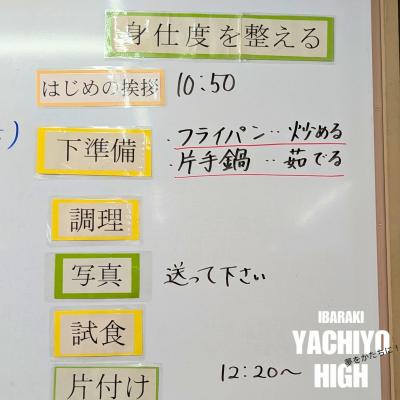 身仕度を整える
はじめの挨拶 10:50
下準備 ・フライパン‥炒める
・片手鍋‥茹でる
調理
写真 送って下さい
試食
片付け 12:20〜
IBARAKI
YACHIYO
夢をかたちに!
HIGH